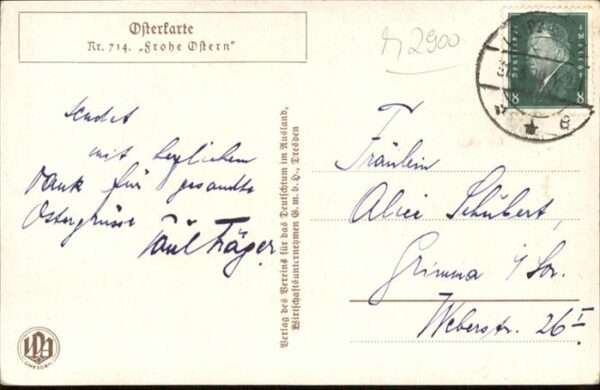 Osterkarte
Nr. 714. „Frohe Ostern"
n 2900
sendet
mit herzlichem
Dank für gesandte
Ostergrüsse
Paul Träger
Verlag des Vereins für das Deutschtum im Ausland,
Wirtschaftsunternehmen G. m. b. H., Dresden
Deutsches Reich
8 8
Fräulein
Alice Schubert,
Grimma i/Sa.
Weberstr. 26 I
VDA
DRESDEN